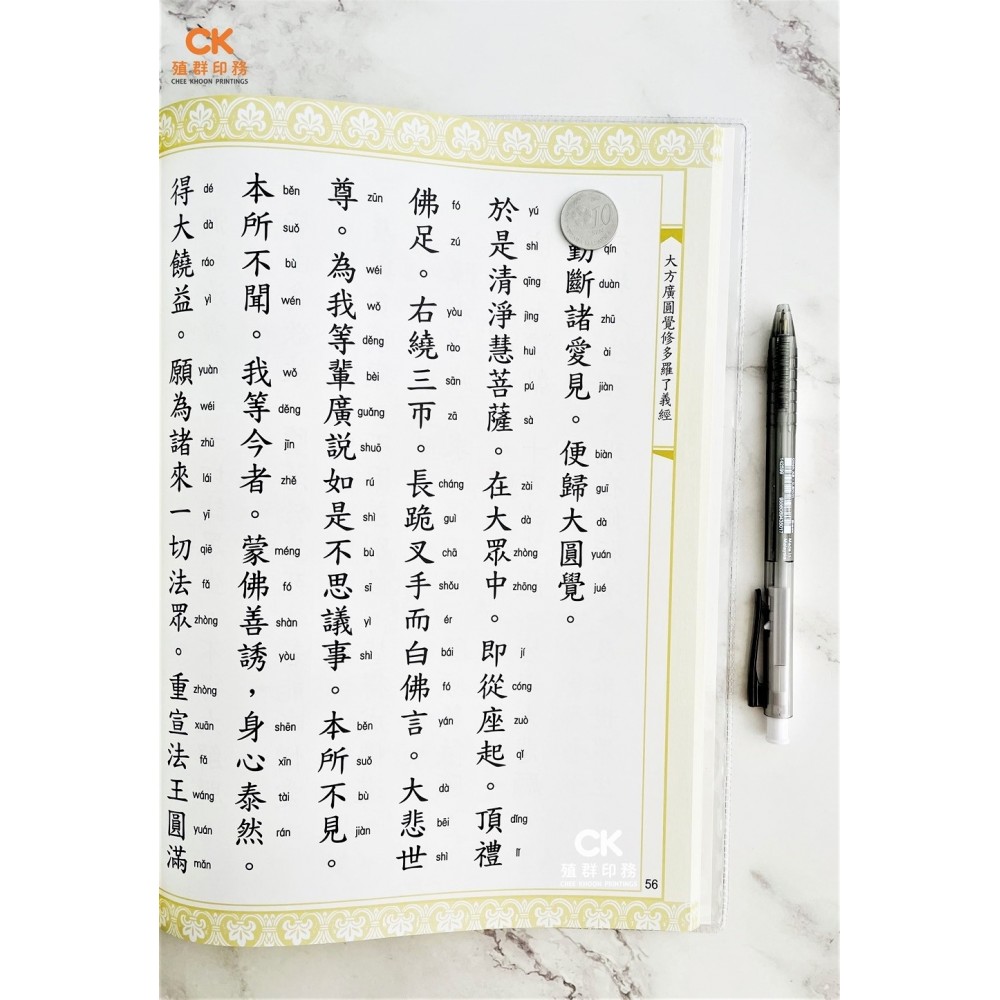 CK
殖群印務
CHEE KHOON PRINTINGS
大方廣圓覺修多羅了義經
10
勤斷諸愛見。便歸大圓覺。
qín duàn zhū ài jiàn biàn guī dà yuán jué
於是清淨慧菩薩。在大眾中。即從座起。頂禮
yú shì qīng jìng huì pú sà zài dà zhòng zhōng jí cóng zuò qǐ dǐng lǐ
佛足。右繞三帀。長跪叉手而白佛言。大悲世
fó zú yòu rào sān zā cháng guì chā shǒu ér bái fó yán dà bēi shì
尊。為我等輩廣說如是不思議事。本所不見。
zūn wéi wǒ děng bèi guǎng shuō rú shì bù sī yì shì běn suǒ bù jiàn
本所不聞。我等今者。蒙佛善誘，身心泰然。
běn suǒ bù wén wǒ děng jīn zhě méng fó shàn yòu shēn xīn tài rán
得大饒益。願為諸來一切法眾。重宣法王圓滿
dé dà ráo yì yuàn wéi zhū lái yī qiē fǎ zhòng zhòng xuān fǎ wáng yuán mǎn
CK
殖群印務
CHEE KHOON PRINTINGS
56